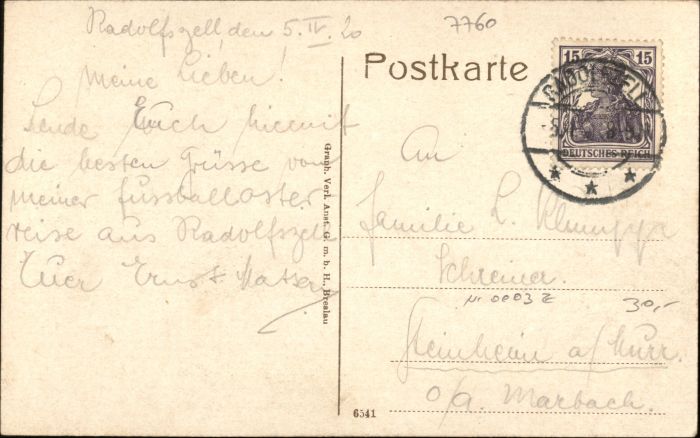 Radolfszell, den 5. IV. 20
Meine Lieben!
Sende Euch hiermit
die besten Grüsse von
meiner Fussballoster
reise aus Radolfszell
Euer Ernst
7760
Postkarte
15 15
DEUTSCHES REICH
RADOLFZELL
An
Familie L. Klumpp
Schreiner.
Nr 0003 Z
30,-
Steinheim a/Murr.
o/a. Marbach.
Graph. Verl. Anst. G. m. b. H., Breslau
6541